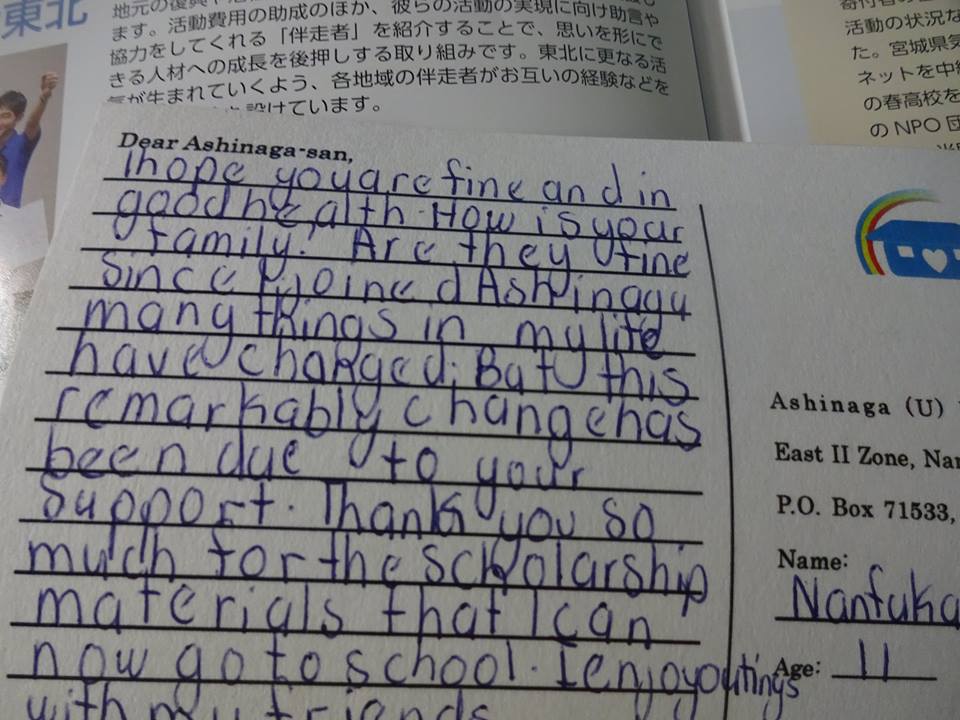 東北
地元の復興や
ます。活動費用の助成のほか、彼らの活動の実現に向け助言や
協力をしてくれる「伴走者」を紹介することで、思いを形にで
きる人材への成長を後押しする取り組みです。東北に更なる活
気が生まれていくよう、各地域の伴走者がお互いの経験などを
設けています。
活動の状況な
た。宮城県気
ネットを中
の春高校を
のNPO団
Dear Ashinaga-san,
I hope you are fine and in
good health. How is your
family? Are they fine
Since I joined Ashinaga
many things in my life
have changed. But this
remarkably change has
been due to your
support. Thank you so
much for the scholarship
materials that I can
now go to school. I enjoy outings
with my friends
Ashinaga (U)
East II Zone, Nan
P.O. Box 71533,
Name:
Nanfuka
Age: 11